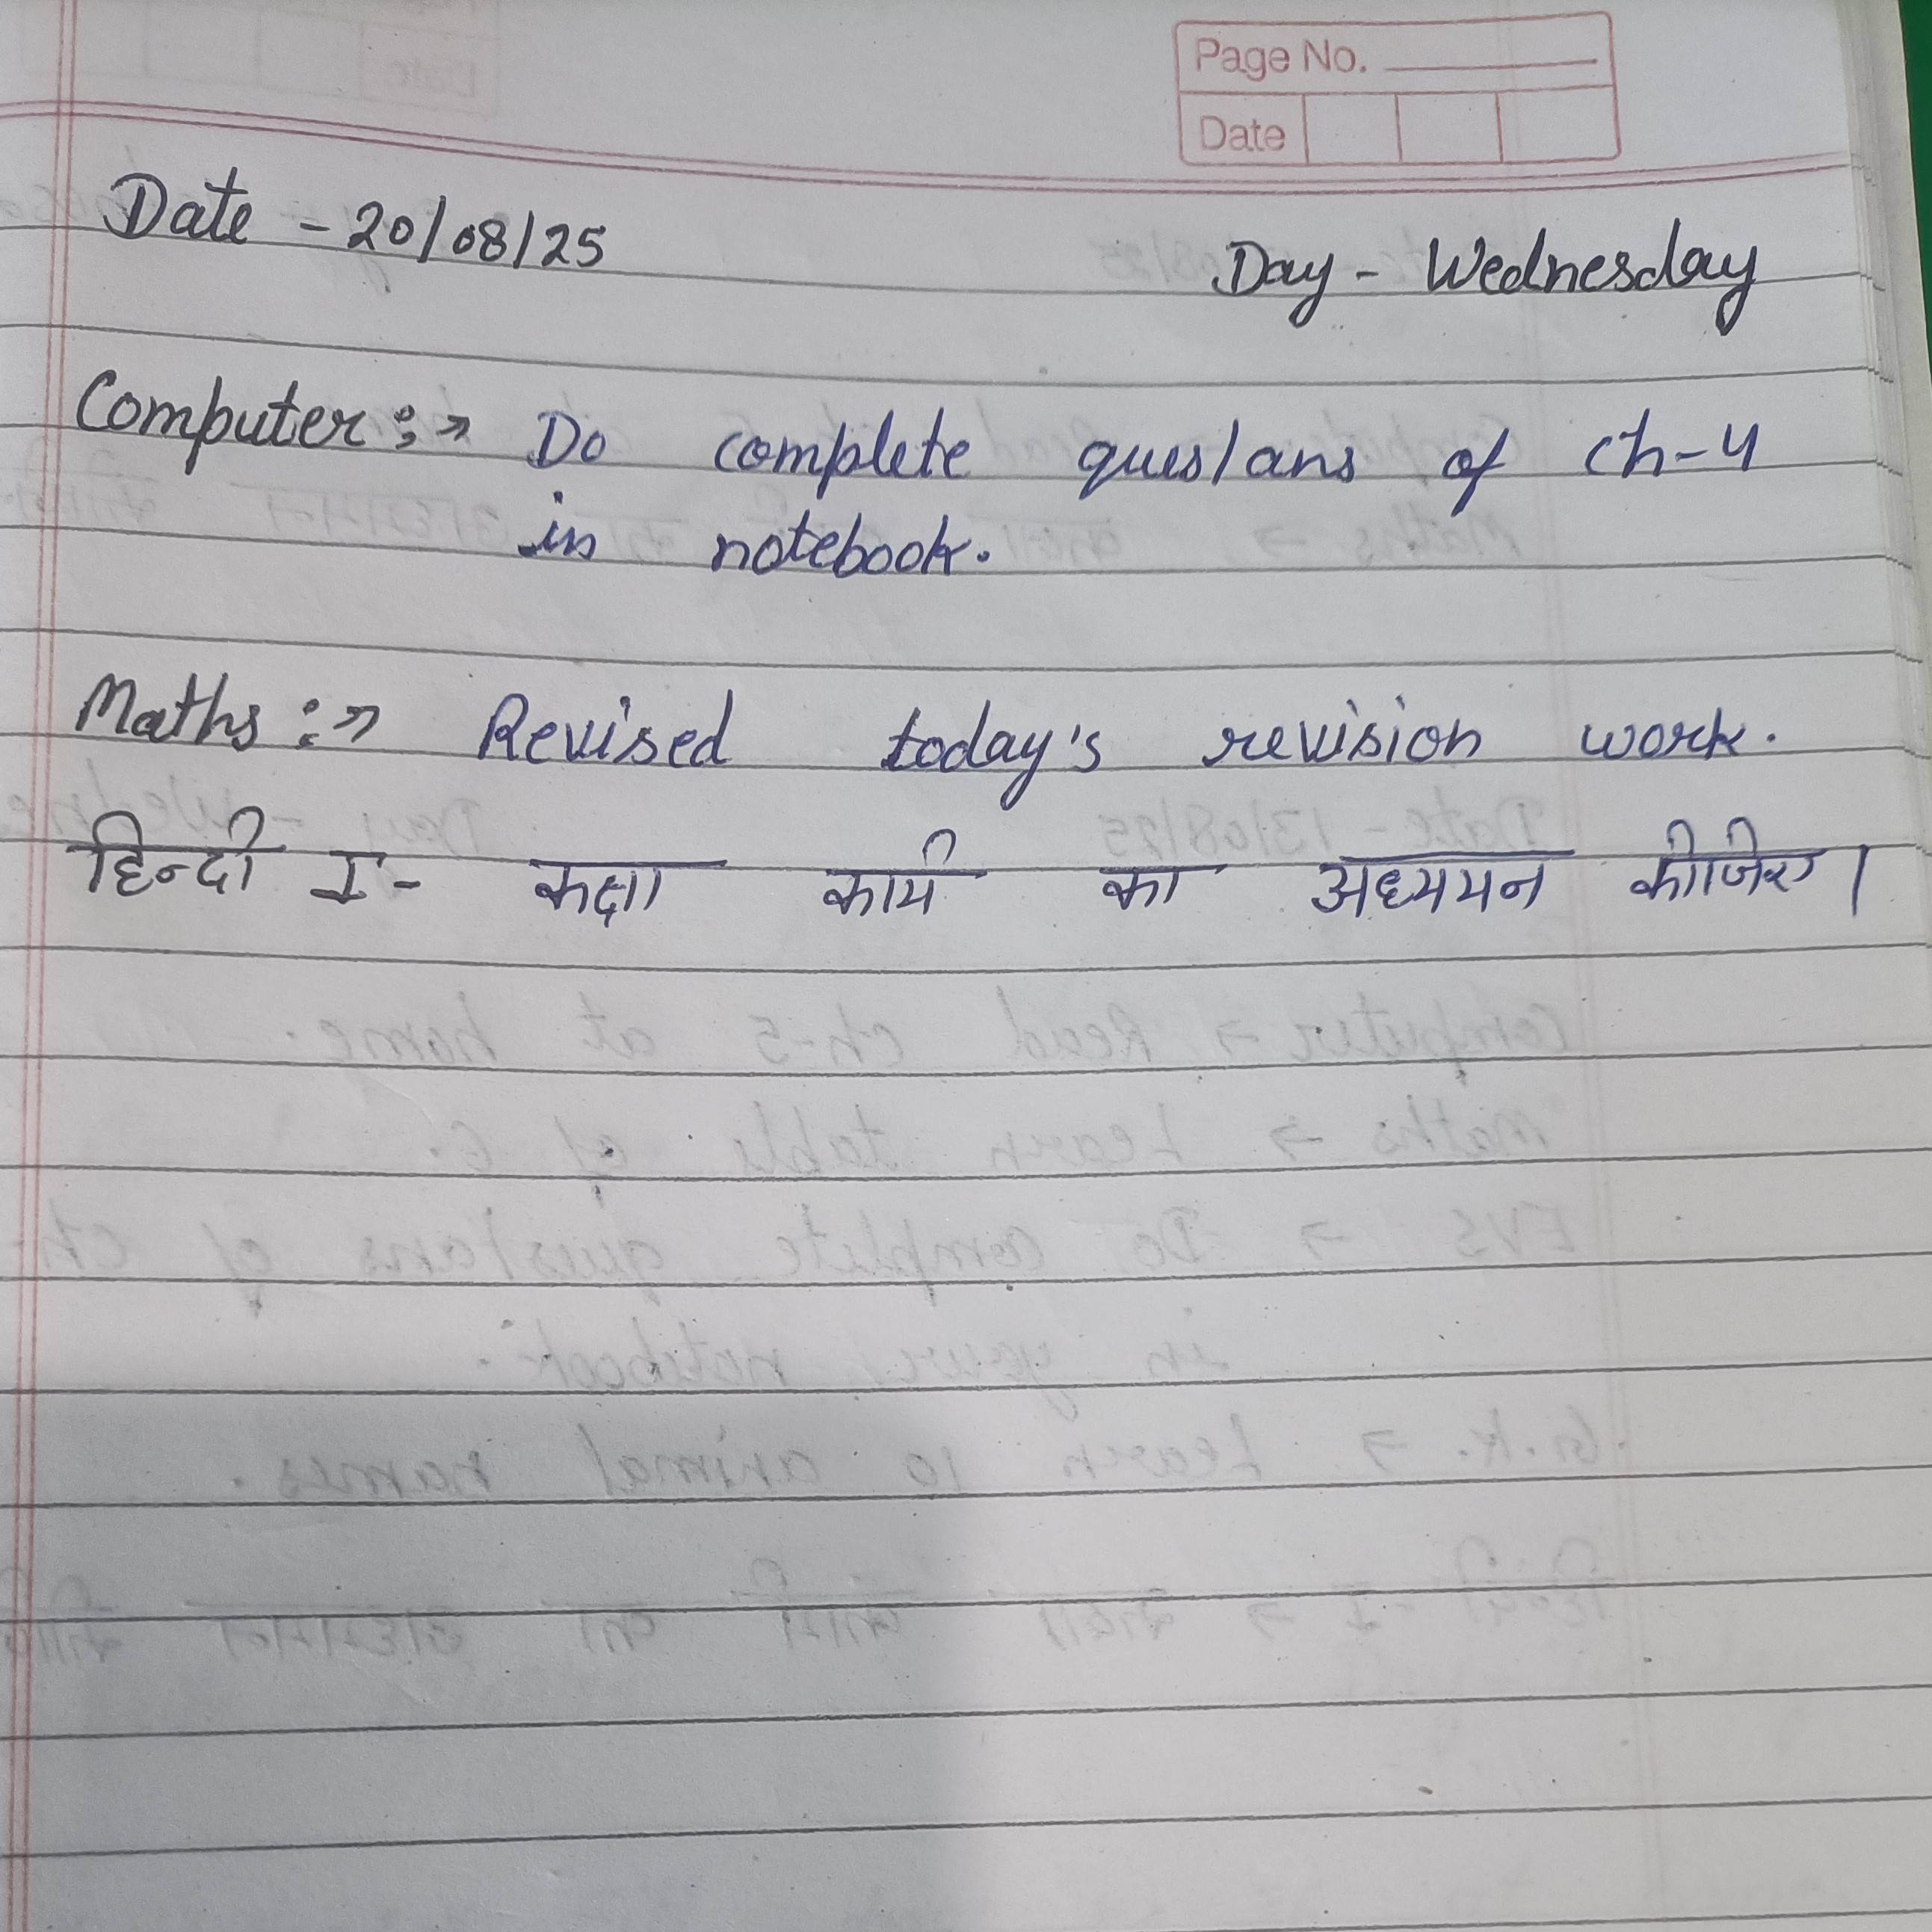 Page No.
Date
Date - 20/08/25 Day - Wednesday
Computer :→ Do complete ques/ans of ch-4
in notebook.
Maths :→ Revised today's revision work.
हिन्दी I - कक्षा कार्य का अध्ययन कीजिए।